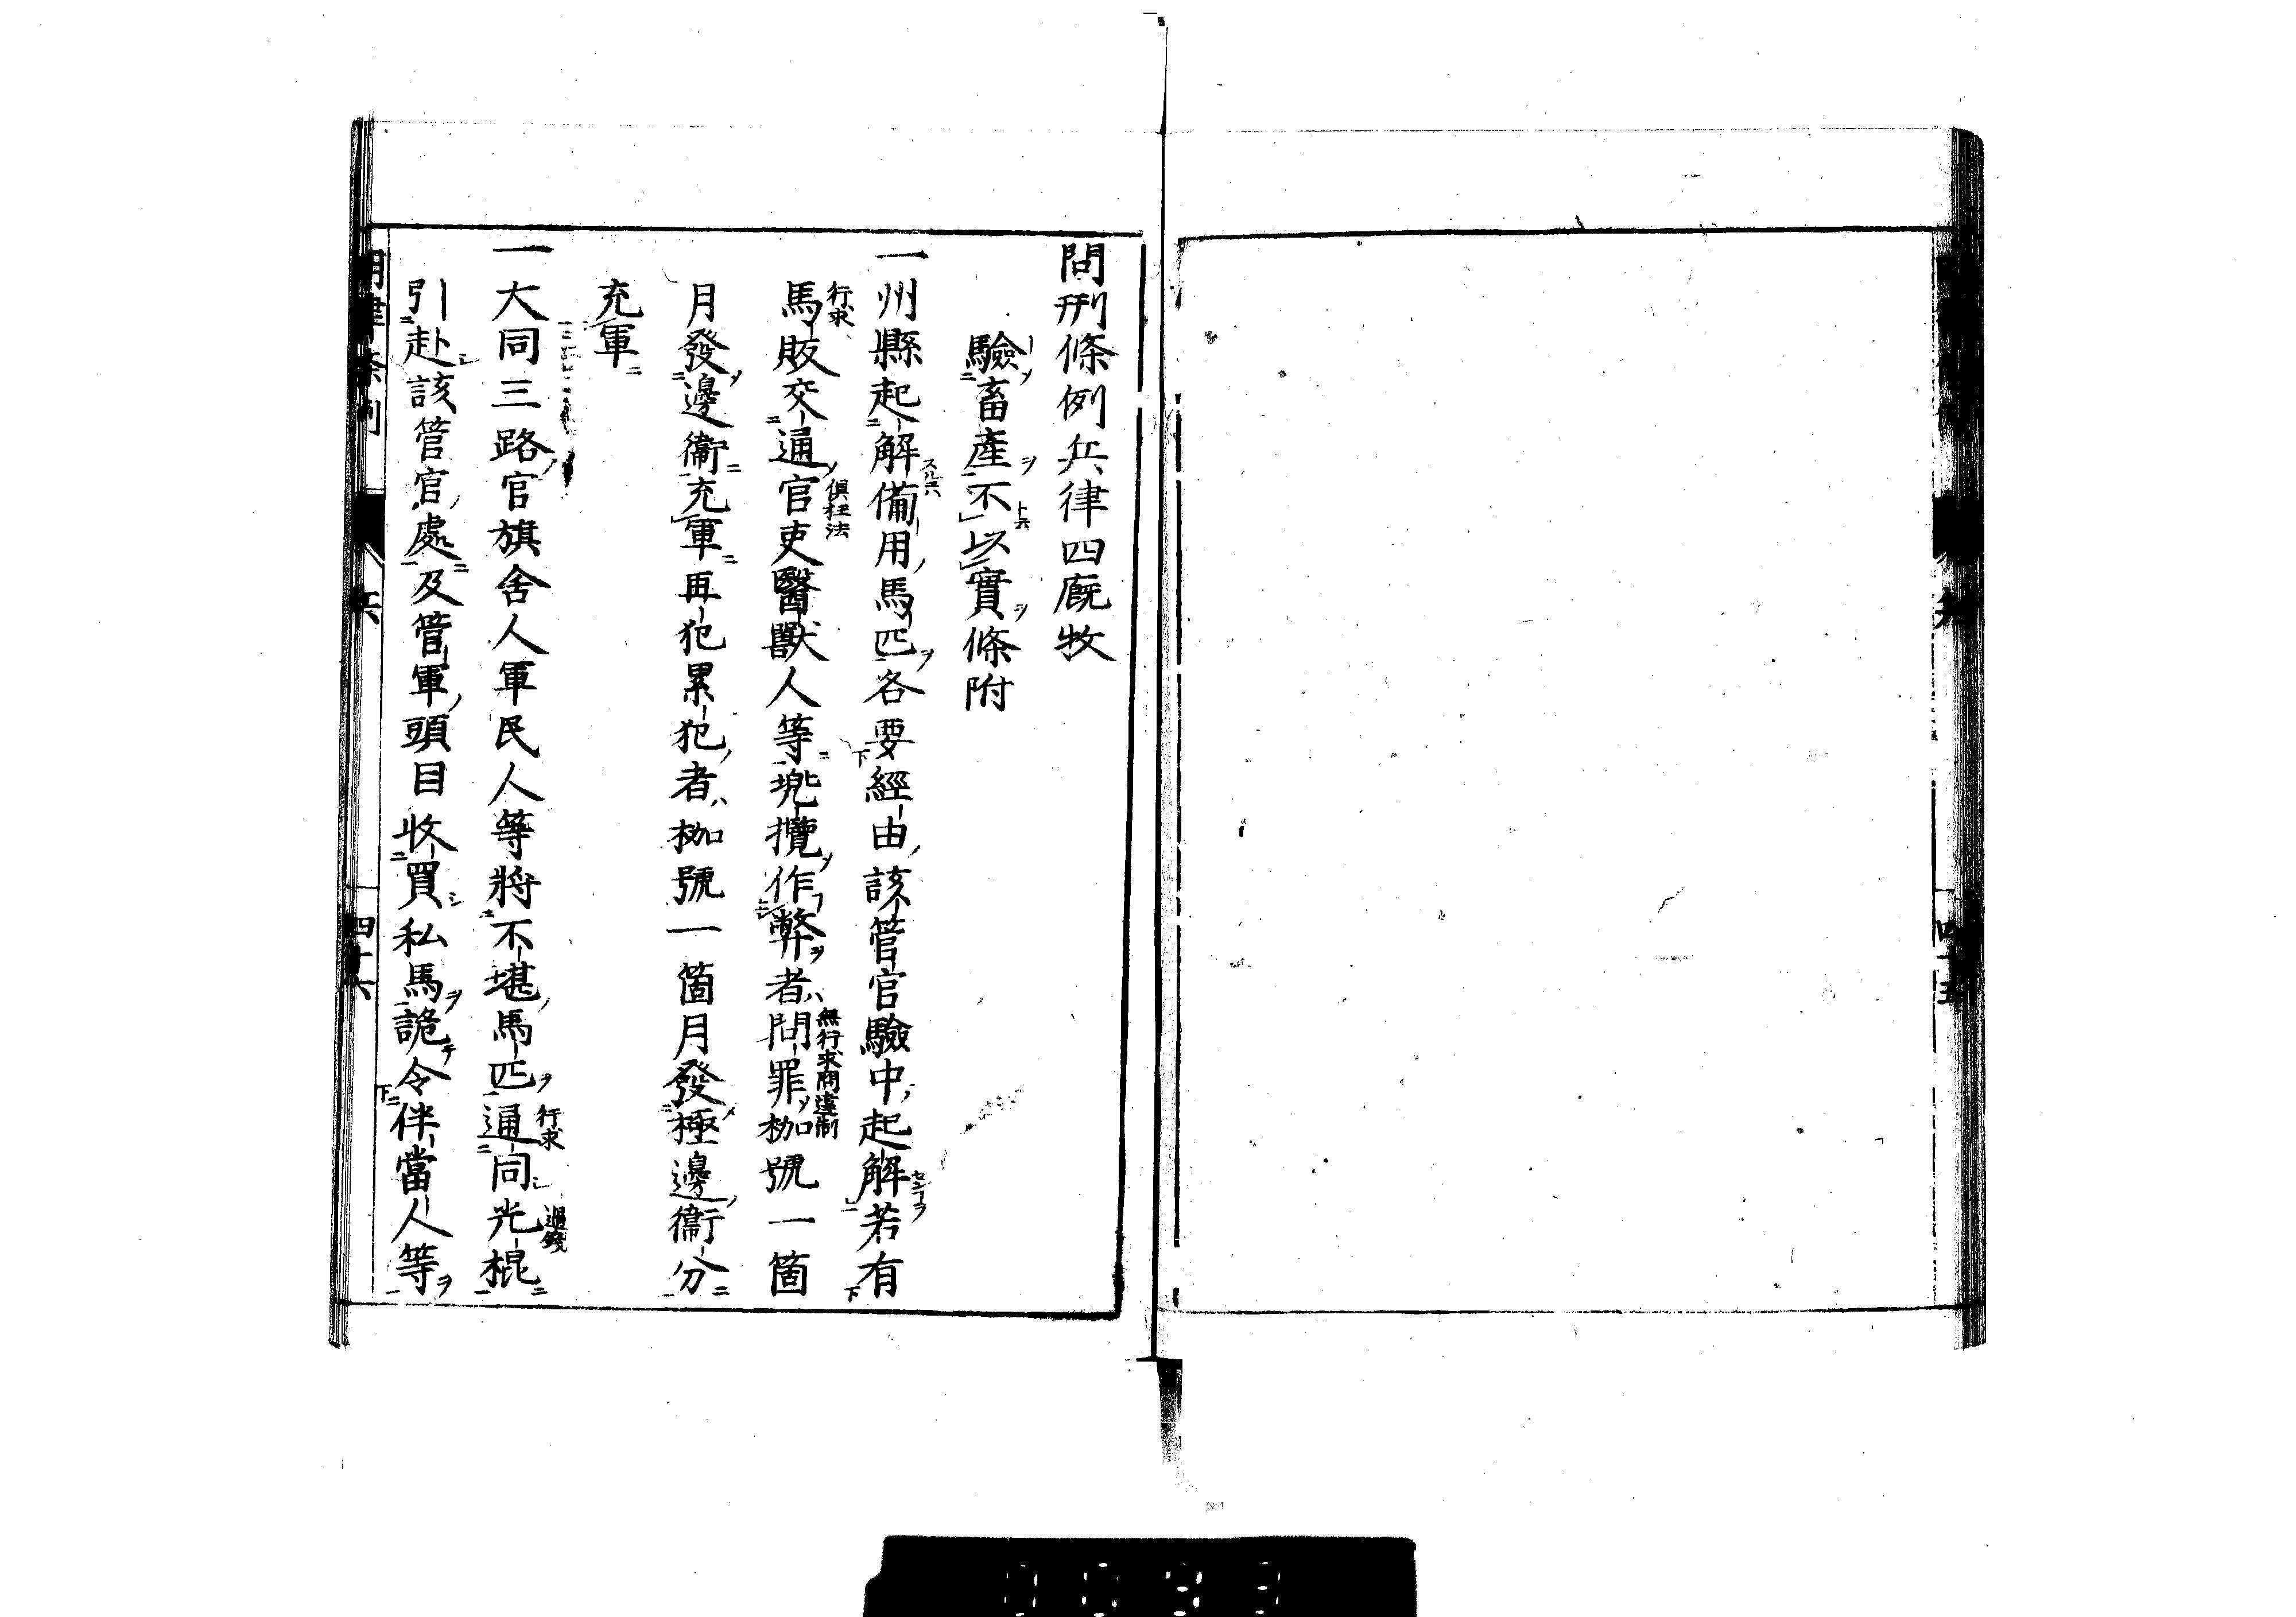 問刑條例兵律四廐牧
驗畜産不以實條附
一州縣起解備用馬匹各要經由該管官驗中起解若有
馬販交通官吏醫獸人等兠攬作弊者問罪枷號一箇
行求
俱枉法
無行求問違制
月發邊衞充軍再犯累犯者枷號一箇月發極邊衞分
充軍
一大同三路官旗舍人軍民人等將不堪馬匹通同光棍
行求
過錢
引赴該管官處及管軍頭目收買私馬詭令伴當人等
四十六
四十五